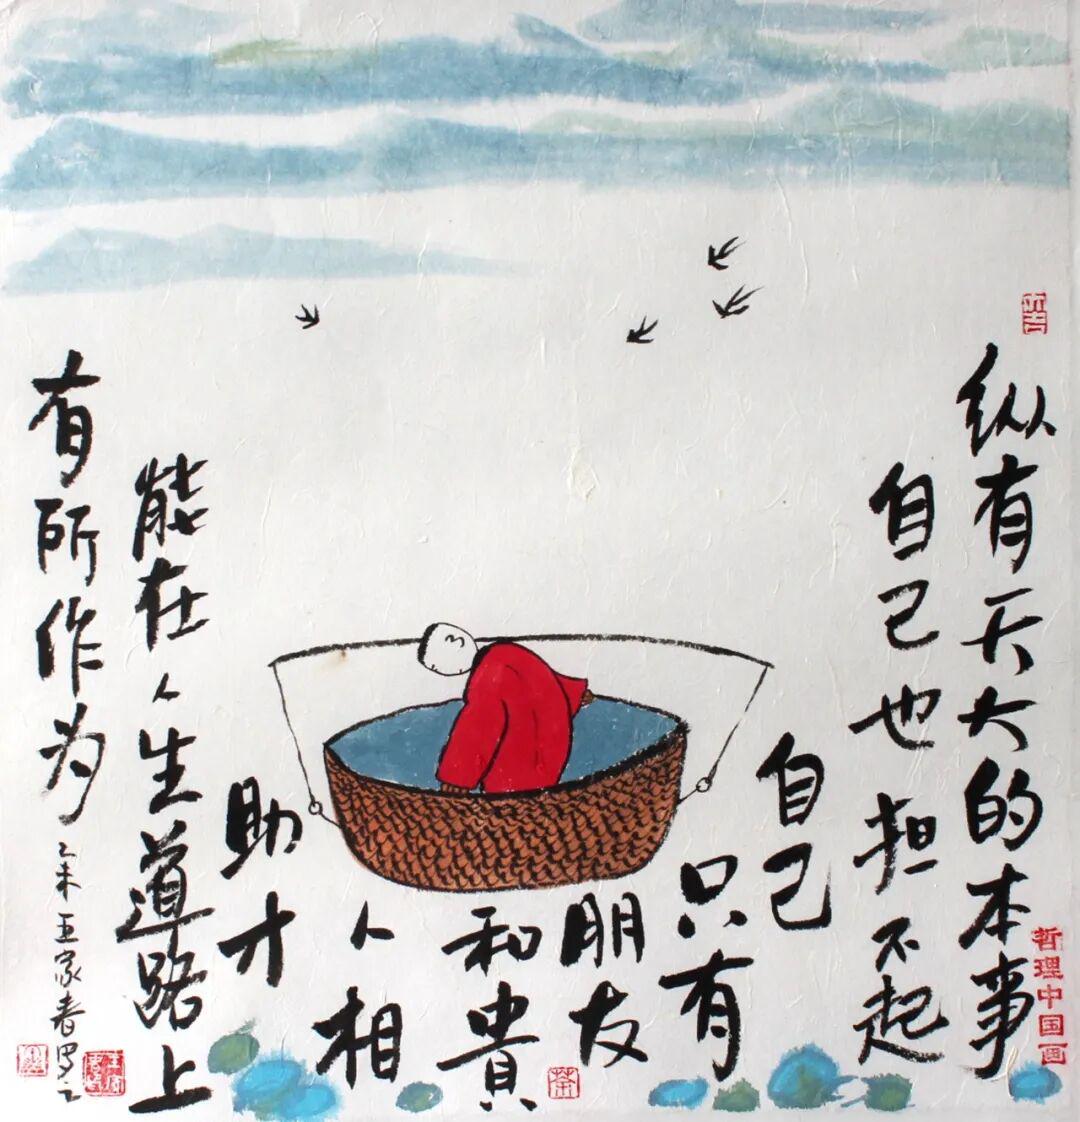 纵有天大的本事
自己也担不起
自己
只有
朋友
和貴
人相
助才
能在人生道路上
有所作为
乙未王家春
哲理中国画
茶